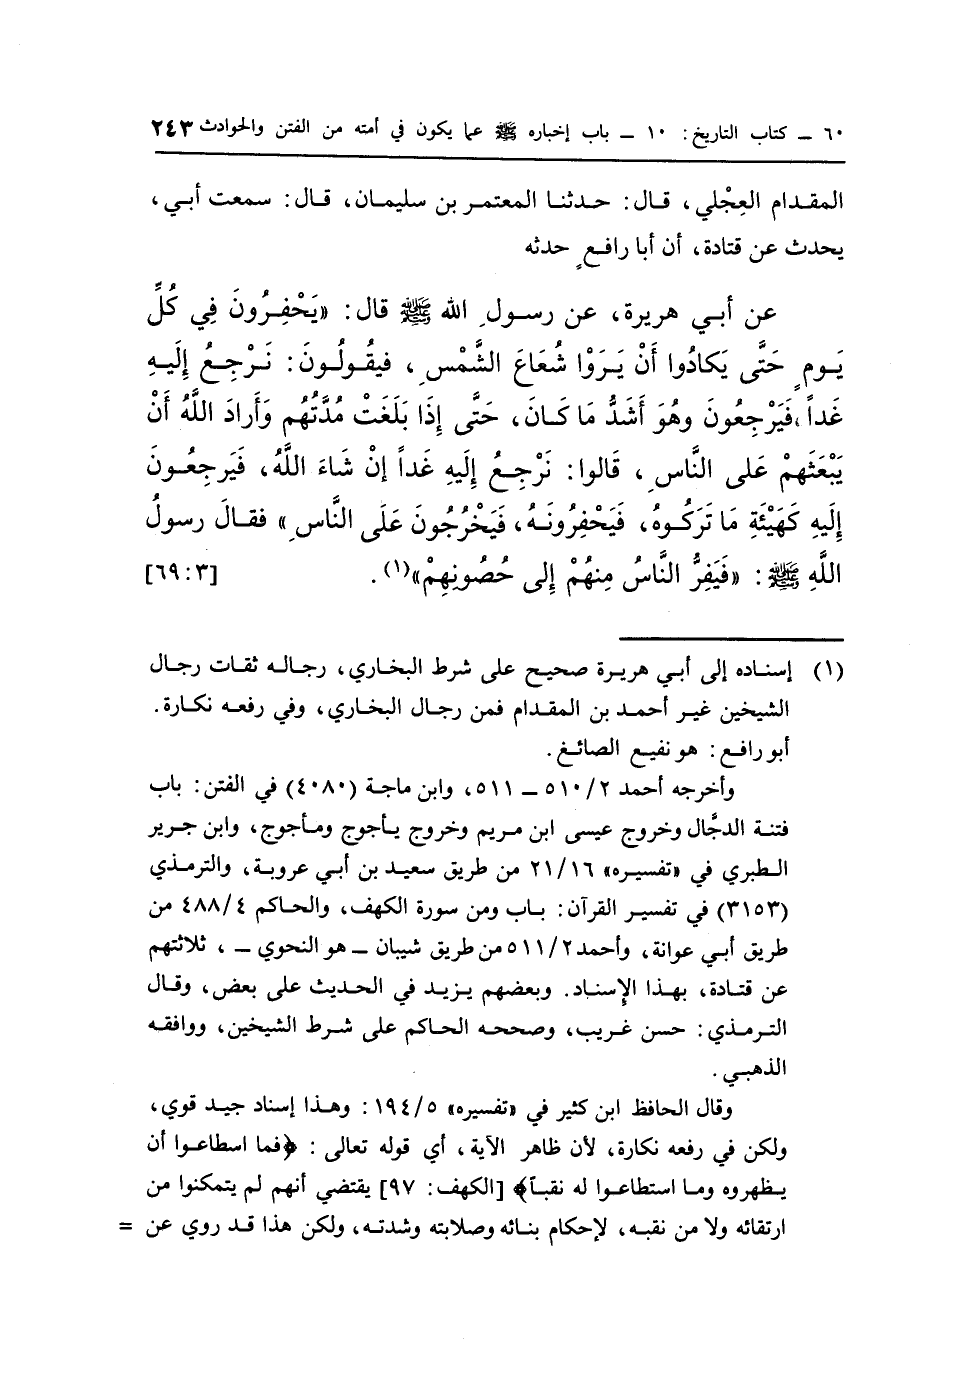 ٦٠ ـ كتاب التاريخ: ١٠ ـ باب إخباره ﷺ عما يكون في أمته من الفتن والحوادث ٢٤٣
المقدام العِجْلي، قال: حدثنا المعتمر بن سليمان، قال: سمعت أبي،
يحدث عن قتادة، أن أبا رافعٍ حدثه
عن أبي هريرة، عن رسولِ الله ﷺ قال: «يَحْفِرُونَ فِي كُلِّ
يَومٍ حَتَّى يَكادُوا أَنْ يَرَوْا شُعَاعَ الشَّمْسِ، فيقُولُونَ: نَرْجِعُ إِلَيهِ
غَداً، فَيَرْجِعُونَ وهُوَ أَشَدُّ مَا كَانَ، حَتَّى إِذَا بَلَغَتْ مُدَّتُهُم وَأَرادَ اللَّهُ أَنْ
يَبْعَثَهمْ عَلى النَّاسِ، قَالوا: نَرْجِعُ إِلَيهِ غَداً إنْ شَاءَ اللَّهُ، فَيَرجِعُونَ
إِلَيهِ كَهَيْئَةِ مَا تَرَكُوهُ، فَيَحْفِرُونَهُ، فَيَخْرُجُونَ عَلَى النَّاسِ» فقالَ رسولُ
اللَّهِ ﷺ: «فَيَفِرُّ النَّاسُ مِنهُمْ إِلى حُصُونِهِمْ»(١). [٦٩:٣]
(١) إسناده إلى أبي هريرة صحيح على شرط البخاري، رجاله ثقات رجال
الشيخين غير أحمد بن المقدام فمن رجال البخاري، وفي رفعه نكارة.
أبو رافع: هو نفيع الصائغ.
وأخرجه أحمد ٥١٠/٢ ـ ٥١١، وابن ماجة (٤٠٨٠) في الفتن: باب
فتنة الدجَّال وخروج عيسى ابن مريم وخروج يأجوج ومأجوج، وابن جرير
الطبري في «تفسيره» ٢١/١٦ من طريق سعيد بن أبي عروبة، والترمذي
(٣١٥٣) في تفسير القرآن: باب ومن سورة الكهف، والحاكم ٤٨٨/٤ من
طريق أبي عوانة، وأحمد ٥١١/٢ من طريق شيبان ـ هو النحوي ـ، ثلاثتهم
عن قتادة، بهذا الإسناد. وبعضهم يزيد في الحديث على بعض، وقال
الترمذي: حسن غريب، وصححه الحاكم على شرط الشيخين، ووافقه
الذهبي.
وقال الحافظ ابن كثير في «تفسيره» ١٩٤/٥: وهذا إسناد جيد قوي،
ولكن في رفعه نكارة، لأن ظاهر الآية، أي قوله تعالى: ﴿فما اسطاعوا أن
يظهروه وما استطاعوا له نقباً﴾ [الكهف: ٩٧] يقتضي أنهم لم يتمكنوا من
ارتقائه ولا من نقبه، لإحكام بنائه وصلابته وشدته، ولكن هذا قد روي عن =